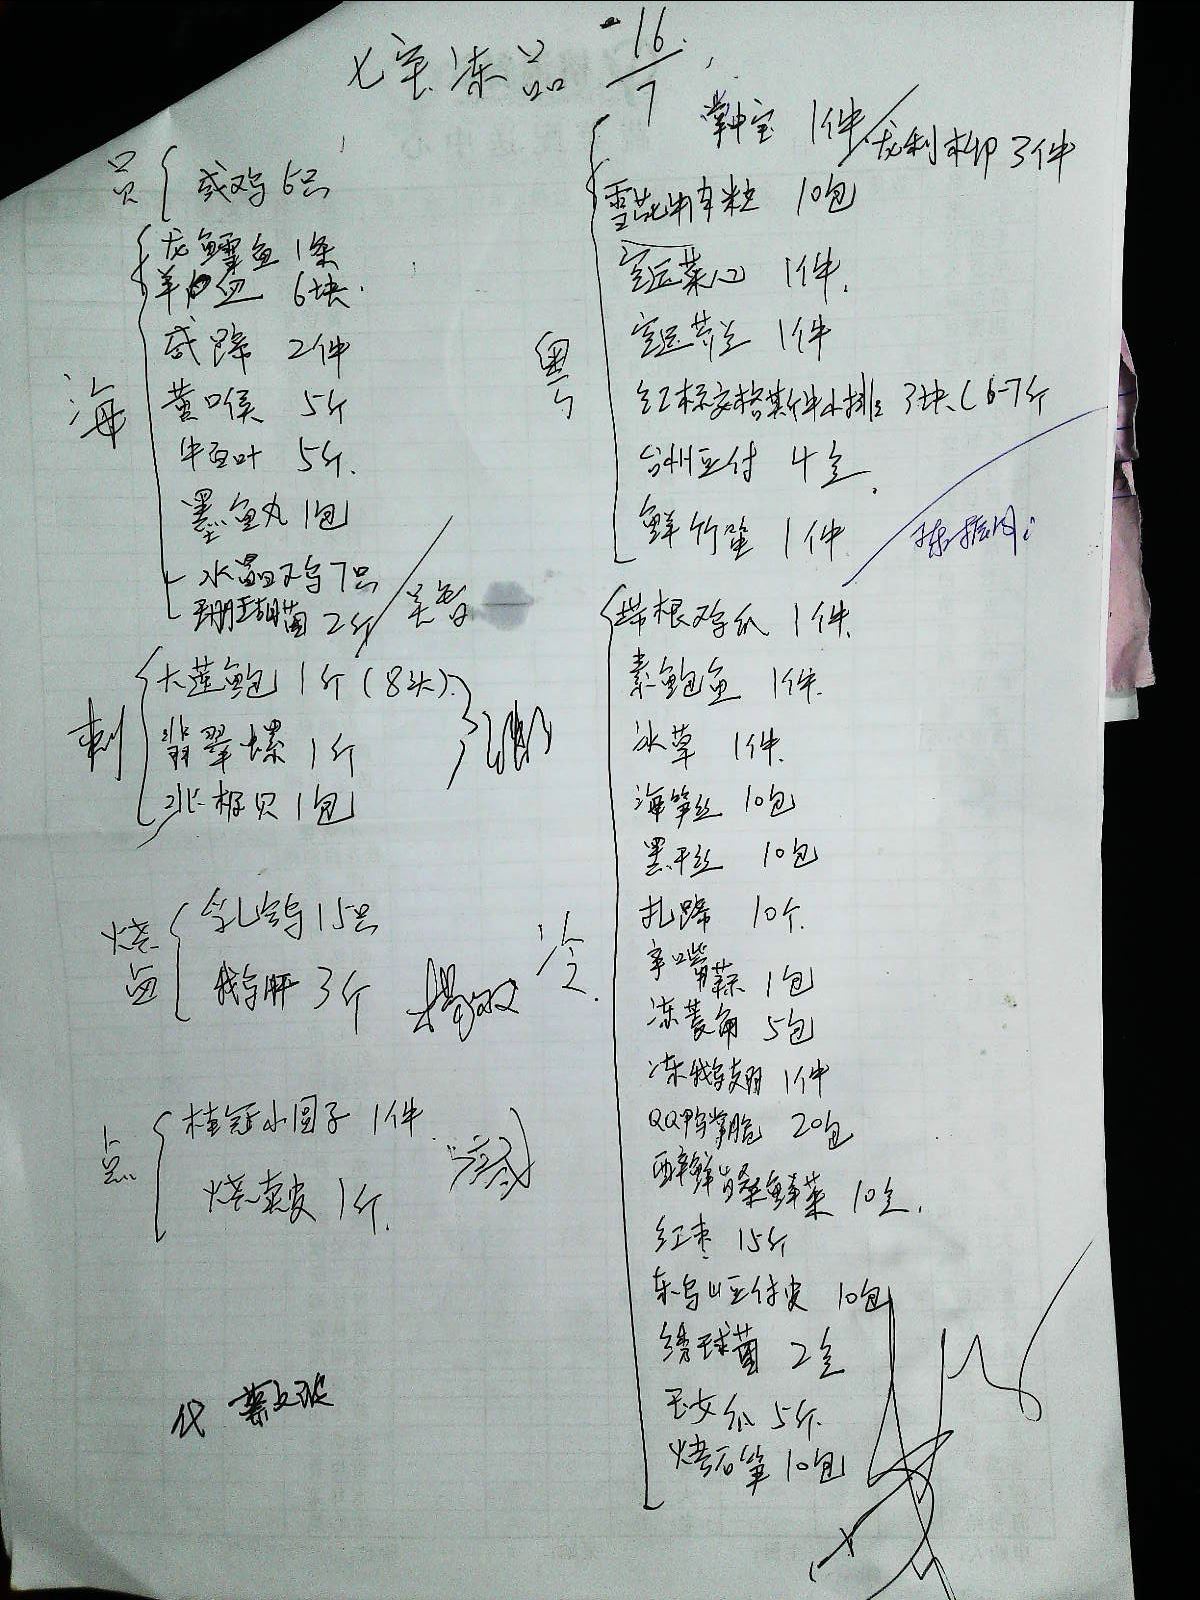 七宝冻品 16/7
员
咸鸡 6只
海
龙鳕鱼 1条
羊血 6块.
咸蹄 2件
黄口喉 5斤
牛百叶 5斤.
墨鱼丸 1包
水晶鸡 7只
珊瑚菌 2斤
刺
大连鲍 1斤(8头).
翡翠螺 1斤
北极贝 1包
烧卤
乳鸽 15只
鹅肝 3斤
点
桂冠小圆子 1件
烧卖皮 1斤.
代
粤
掌中宝 1件
龙利柳 3件
雪花牛肉粒 10包
宁夏菜心 1件.
宁夏芥兰 1件
红标安格斯牛小排 3块(6-7斤
台州豆付 4盒.
鲜竹笙 1件
冷
带根鸡爪 1件.
素鲍鱼 1件.
冰草 1件.
海笋丝 10包
黑干丝 10包
扎蹄 10个.
1包
冻菱角 5包
冻鹅翅 1件
QQ鸭掌脆 20包
醉鲜 鲜菜 10盒.
红枣 15斤
东乌山豆付皮 10包
绣球菌 2盒
玉女瓜 5斤.
烤石笋 10包